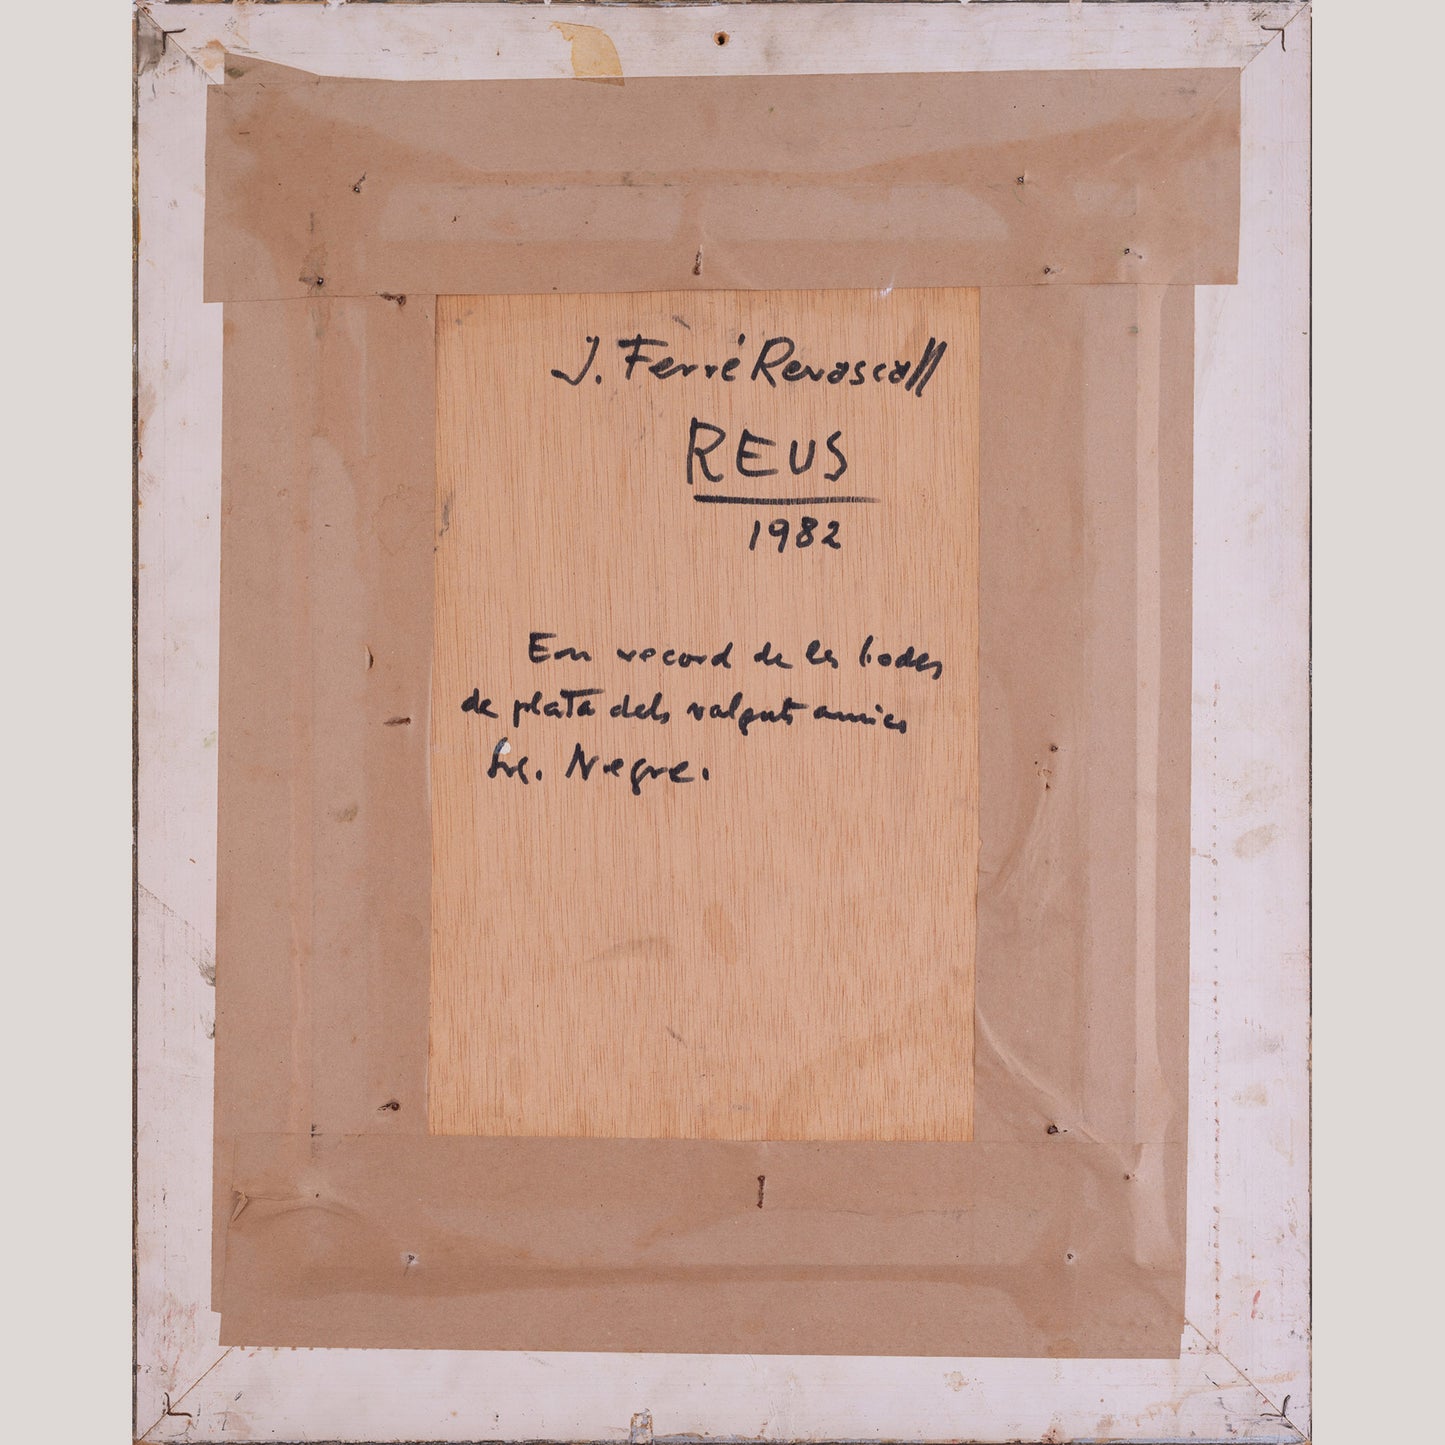 J. Ferré Revascall
REUS
1982
En record de les bodes
de plata dels volguts amics
Negre.